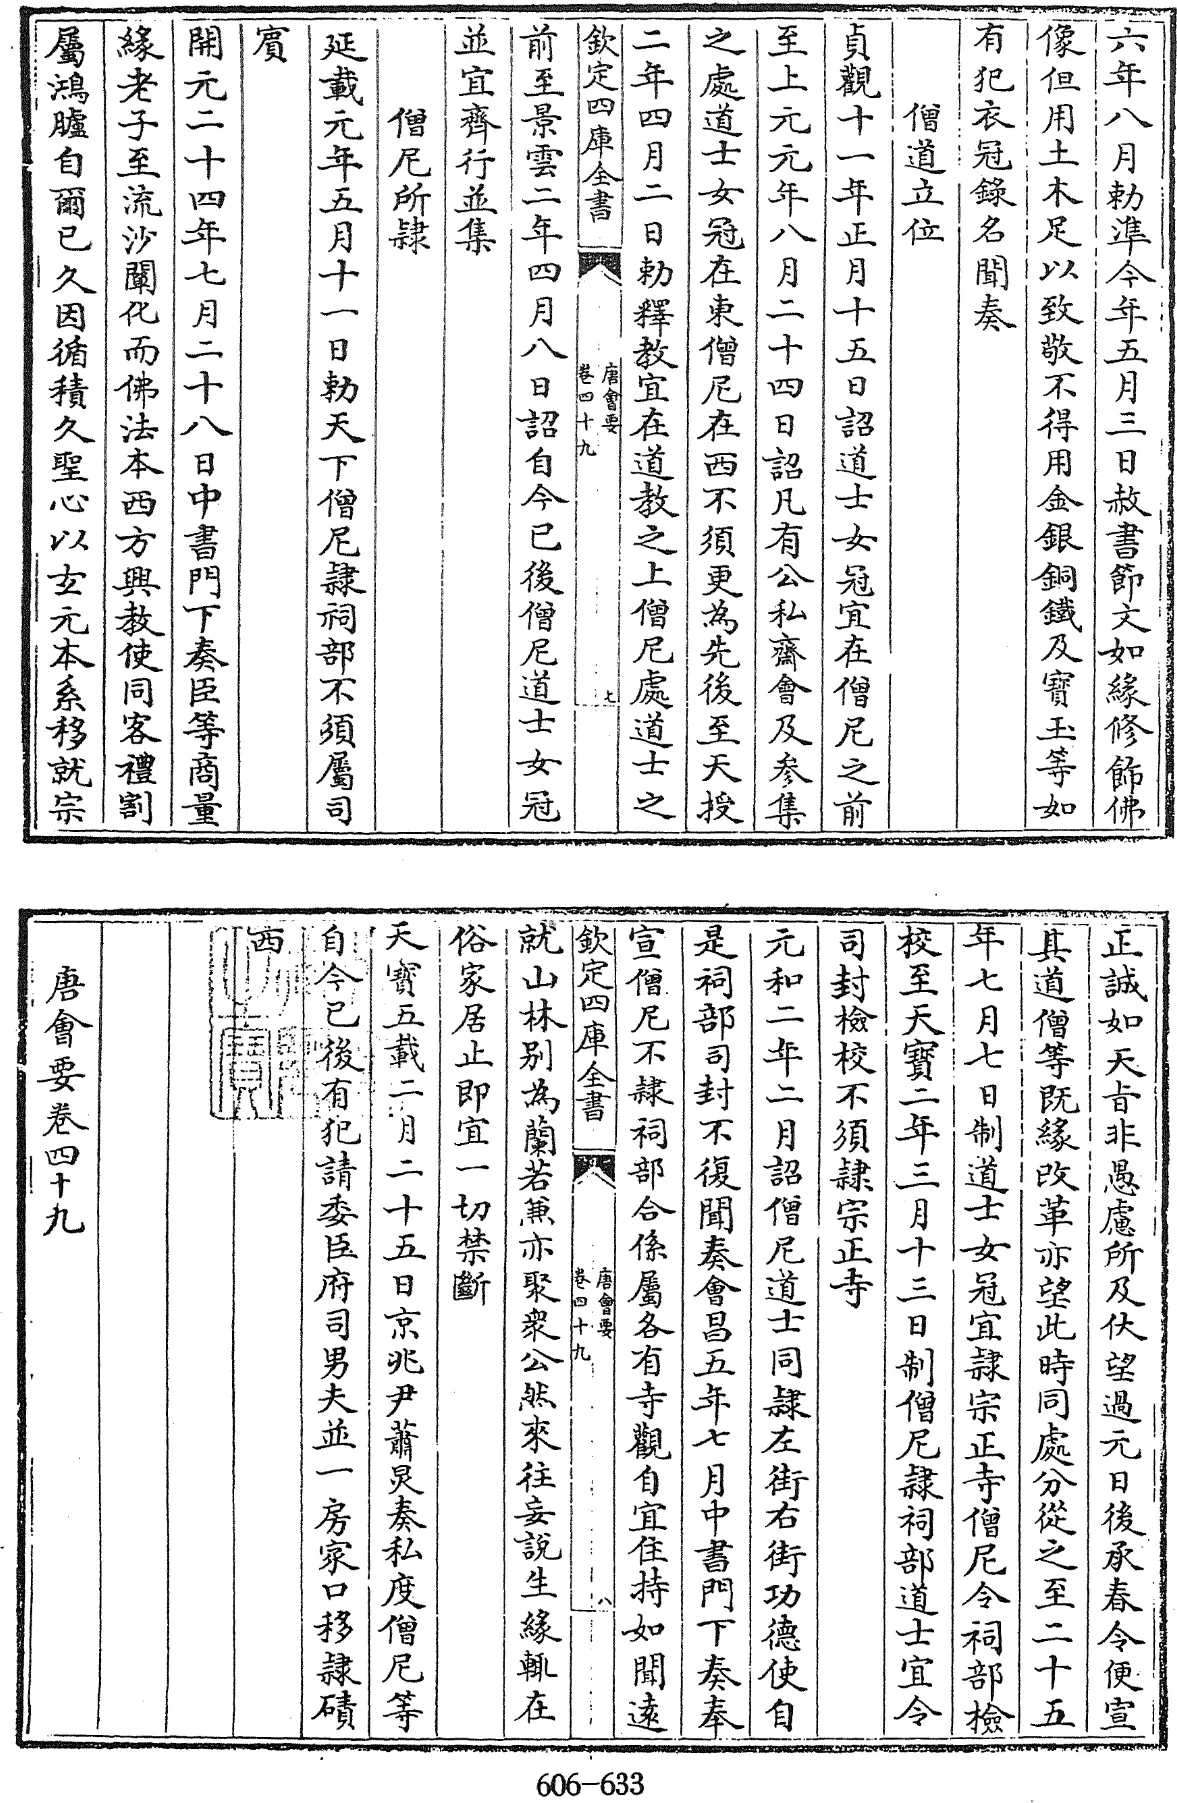 六年八月勅準今年五月三日赦書節文如緣修飾佛
像但用土木足以致敬不得用金銀銅鐵及寶玉等如
有犯衣冠錄名聞奏
僧道立位
貞觀十一年正月十五日詔道士女冠宜在僧尼之前
至上元元年八月二十四日詔凡有公私齋會及參集
之處道士女冠在東僧尼在西不須更為先後至天授
二年四月二日勅釋教宜在道教之上僧尼處道士之
欽定四庫全書
唐會要
卷四十九
七
前至景雲二年四月八日詔自今已後僧尼道士女冠
並宜齊行並集
僧尼所隷
延載元年五月十一日勅天下僧尼隷祠部不須屬司
賓
開元二十四年七月二十八日中書門下奏臣等商量
緣老子至流沙闡化而佛法本西方興教使同客禮割
屬鴻臚自爾已久因循積久聖心以玄元本系移就宗
正誠如天旨非愚慮所及伏望過元日後承春令便宣
其道僧等既緣改革亦望此時同處分從之至二十五
年七月七日制道士女冠宜隷宗正寺僧尼令祠部檢
校至天寶二年三月十三日制僧尼隷祠部道士宜令
司封檢校不須隷宗正寺
元和二年二月詔僧尼道士同隷左街右街功德使自
是祠部司封不復聞奏會昌五年七月中書門下奏奉
宣僧尼不隷祠部合係屬各有寺觀自宜住持如聞遠
欽定四庫全書
唐會要
卷四十九
八
就山林别為蘭若兼亦聚衆公然來往妄說生緣輒在
俗家居止即宜一切禁斷
天寶五載二月二十五日京兆尹蕭炅奏私度僧尼等
自今已後有犯請委臣府司男夫並一房家口移隷磧
西
唐會要卷四十九
606-633